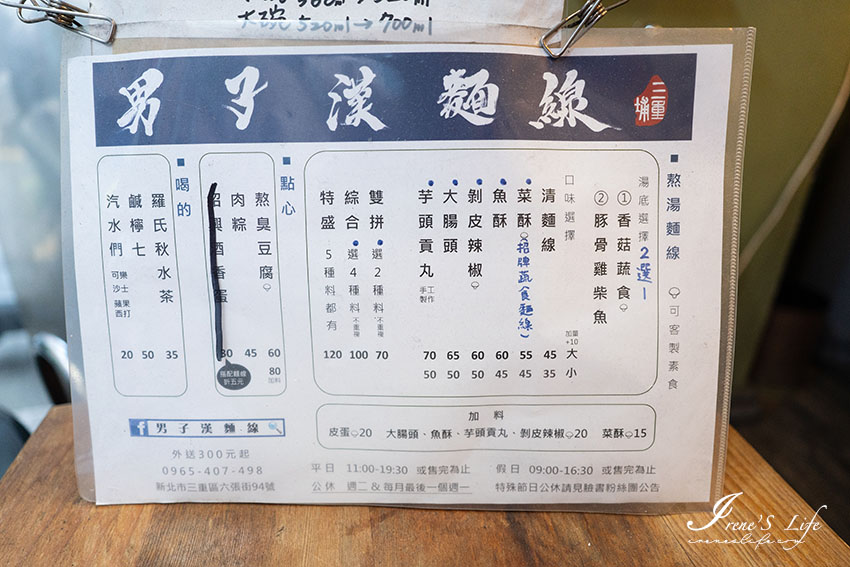 大碗520ml→700ml
男子漢麵線
三重埔
熬湯麵線 可客製素食
湯底選擇 2選一
①香菇蔬食
②豚骨雞柴魚
口味選擇 加量+10 大 小
清麵線 45 35
菜酥(招牌蔬食麵線) 55 45
魚酥 60 45
剝皮辣椒 60 45
大腸頭 65 50
芋頭貢丸 手工製作 70 50
雙拼 選2種料 不重複 70
綜合 選4種料 不重複 100
特盛 5種料都有 120
點心
熬臭豆腐 60 80加料
肉粽 45
紹興酒香蛋 30
搭配麵線折五元
喝的
羅氏秋水茶 35
鹹檸七 50
汽水們 可樂 沙士 蘋果西打 20
加料
皮蛋20 大腸頭、魚酥、芋頭貢丸、剝皮辣椒20 菜酥15
f 男子漢麵線
外送300元起
0965-407-498
新北市三重區六張街94號
平日 11:00-19:30 或售完為止 假日 09:00-16:30 或售完為止
公休 週二&每月最後一個週一 特殊節日公休請見臉書粉絲團公告
Irene'S Life